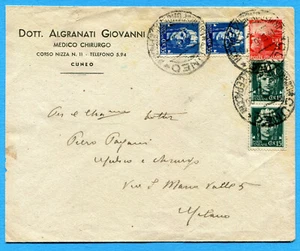 DOTT. ALGRANATI GIOVANNI
MEDICO CHIRURGO
CORSO NIZZA N. 11 - TELEFONO 5.94
CUNEO
Piero Pagani
Medico e chirurgo
Via S. Maria Valle 5
Milano